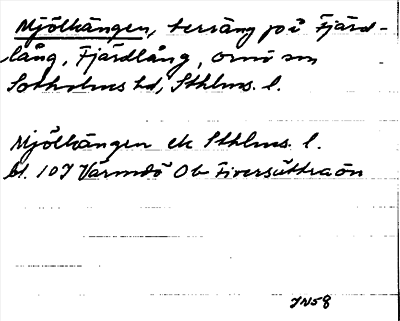 Mjölkängen, terräng på Fjärd-
lång, Fjärdlång, Ornö sn
Sotholms hd, Sthlms. l.
Mjölkängen ek Sthlms. l.
bl. 107 Värmdö Ob Fiversättraön
JN58